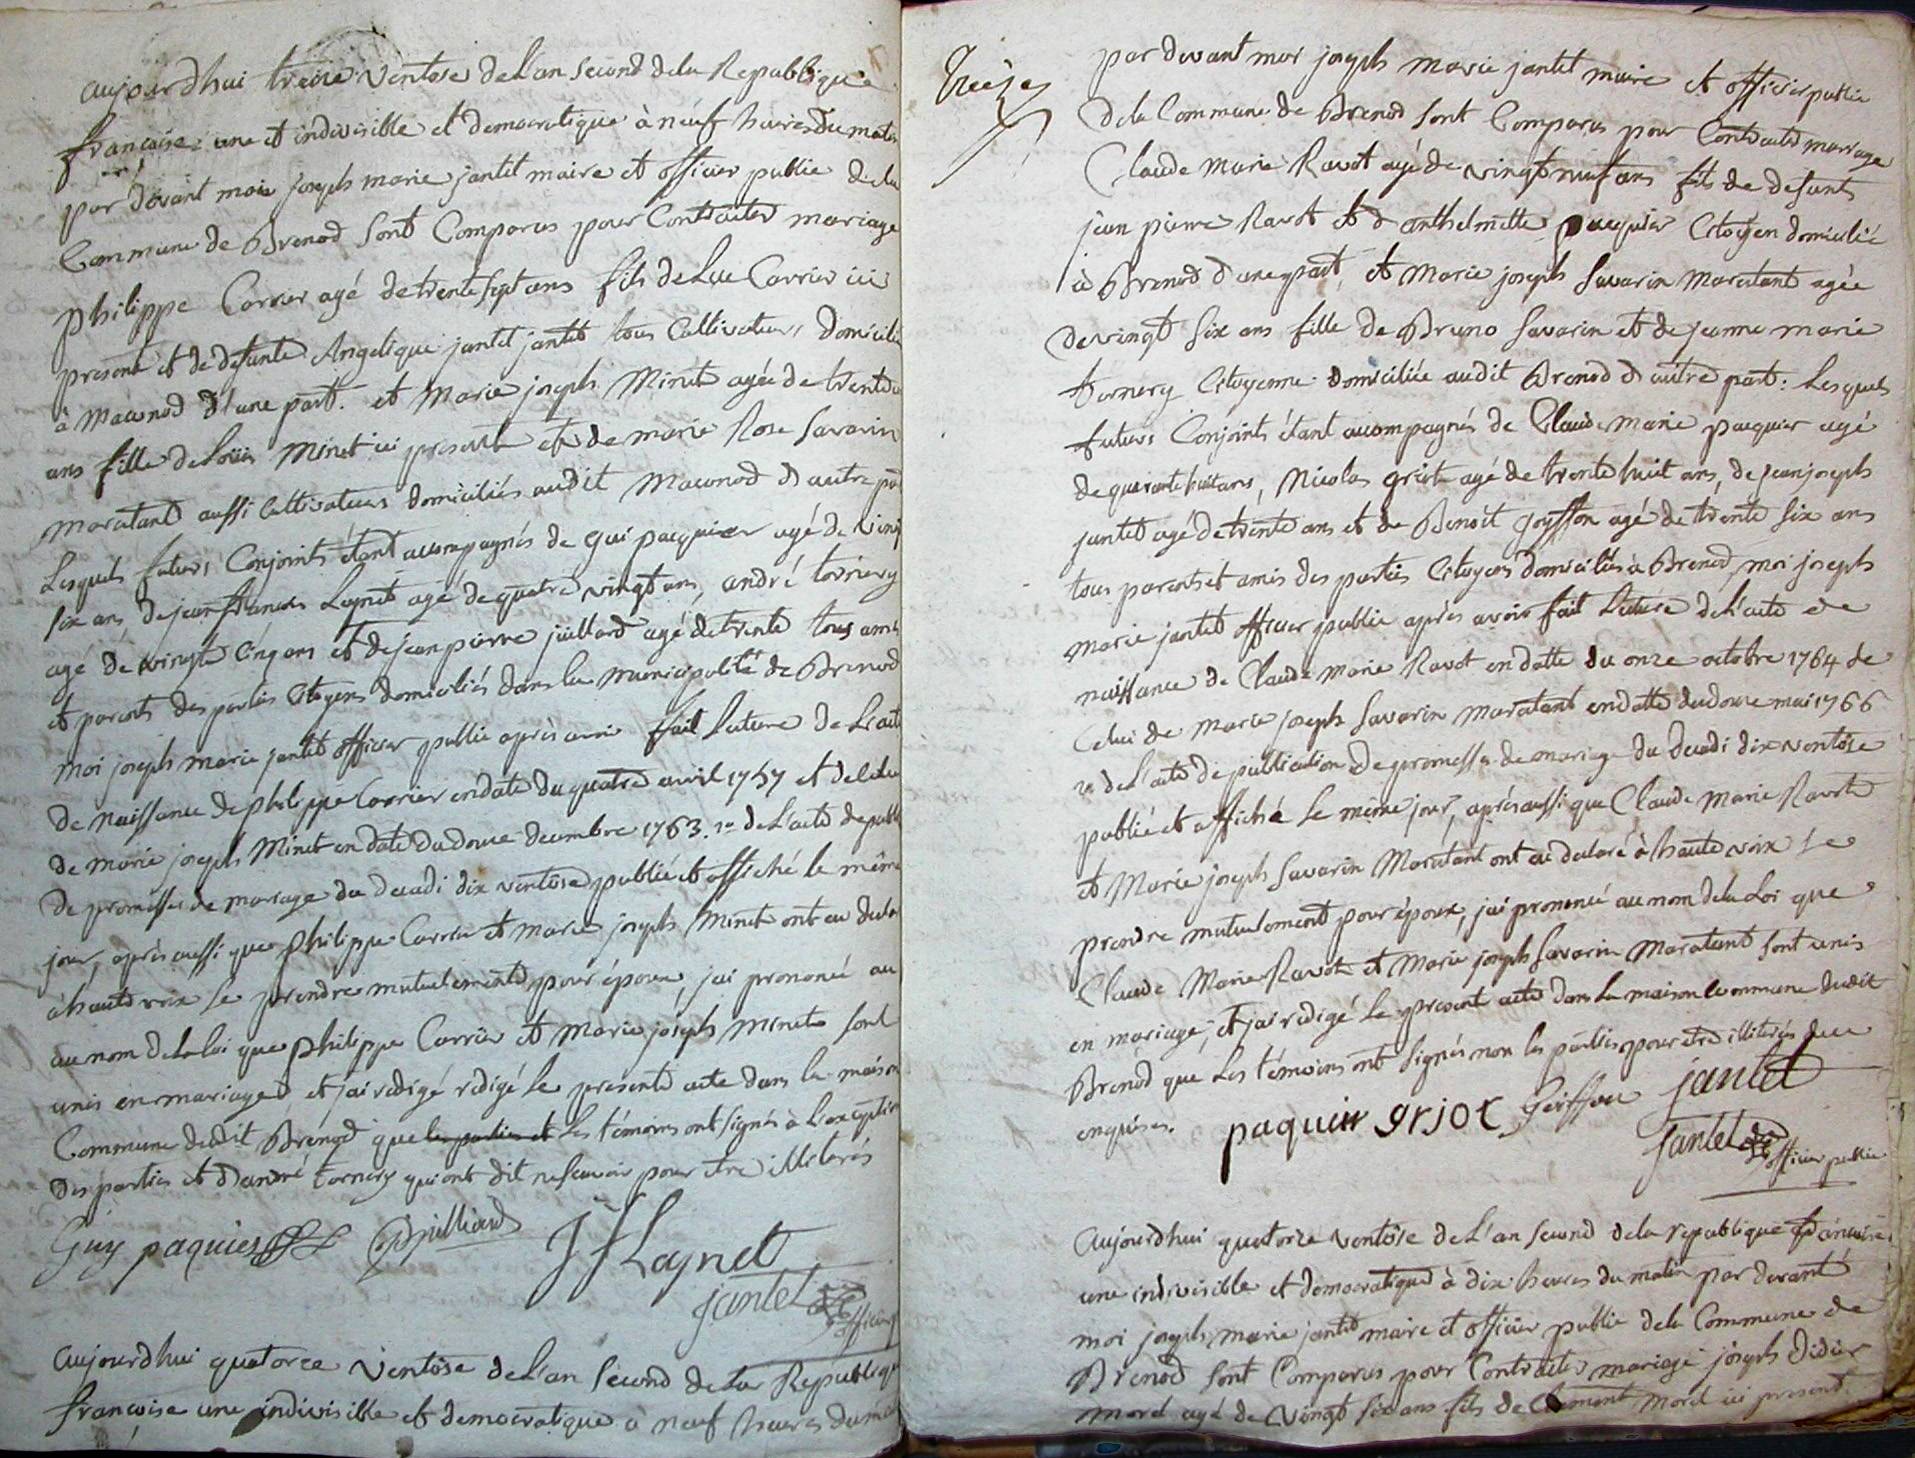 aujourdhui treize ventose de L'an second dela Republique
françoise une et indivisible et democratique à neuf heures du matin
par devant moi joseph marie jantet maire et officier public dela
Commune de Brenod sont Comparus pour Contracter mariage
philippe Carrier agé de trente sept ans fils de Luc Carrier ici
present et de defunte Angelique jantet jantet tous Cultivateurs domicilié
à Macunod d'une part. et Marie joseph Minet agée de trente
ans fille de Loüis Minet ici present et de marie Rose Savarin
maratant aussi Cultivateurs domiciliés audit Macunod d'autre part
Lesquels futurs Conjoints étant accompagnés de gui pacquier agé de vingt
six ans de jean françois Laynet agé de quatre vingt ans, andré tornery
agé de vingt cinq ans et de jean pierre juillard agé de trente tous amis
et parents des parties Citoyens domiciliés dans la municipalité de Brenod
moi joseph marie jantet officier public après avoir fait Lecture de L'acte
de naissance de philippe Carrier en date du quatre avril 1757 et de celui
de marie joseph Minet en date du douze decembre 1763. 2º de L'acte de publi
de promesses de mariage du decadi dix ventôse publié et affiché le même
jour, après aussi que philippe Carrier et marie joseph Minet ont eu declaré
à haute voix se prendre mutuelement pour époux, jai prononcé au
au nom de la Loi que philippe Carrier et Marie joseph Minet sont
unis en mariage et j'ai redigé redigé le present acte dans la maison
Commune dudit Brénod que les parties et les témoins ont signés à L'exception
des parties et d'andré tornery qui ont dit ne sçavoir pour etre illiterés
Guy paquier JP juilliard J f Laynet
jantet officier p
aujourdhui quatorze ventôse de L'an second de la Republique
françoise une indivisible et democratique à neuf heures du matin
Treize
par devant moi joseph marie jantet maire et officier public
dela Commune de Brenod sont Comparus pour Contracter mariage
Claude Marie Ravot agé de vingt neuf ans fils de defunts
jean pierre Ravot et d'anthelmette pacquier Citoyen domicilié
à Brenod d'une part, et Marie joseph Savarin Maratant agée
de vingt six ans fille de Bruno Savarin et de jeanne marie
tornery Citoyenne domiciliée audit Brenod d'autre part. Lesquels
futurs Conjoints étant accompagnés de Claude Marie pacquier agé
de quarante huit ans, Nicolas griot agé de trente huit ans, de jean joseph
jantet agé de trente ans et de Benoit goyffon agé de trente six ans
tous parents et amis des parties Citoyens domiciliés à Brenod, moi joseph
marie jantet officier public après avoir fait Lecture de L'acte de
naissance de Claude Marie Ravot en datte du onze octobre 1764 de
Celui de marie joseph Savarin maratant en datte du douze mai 1766
2º de L'acte de publication de promesses de mariage du decadi dix ventôse
publié et affiché le même jour, après aussi que Claude Marie Ravot
et Marie joseph Savarin Maratant ont eu declaré à haute voix se
prendre mutuelement pour époux, jai prononcé au nom de la Loi que
Claude Marie Ravot et Marie joseph Savarin Maratant sont unis
en mariage, et j'ai redigé le present acte dans la maison Commune dudit
Brenod que les témoins ont signés non les parties pour etre illiterés de ce
enquises. paquier grjot Goiffon jantet
jantet officier public
aujourdhui quatorze ventôse de L'an second dela republique françoise
une indivisible et democratique à dix heures du matin par devant
moi joseph marie jantet maire et officier public dela Commune de
Brenod sont Comparus pour Contracter mariage joseph Didier
morel agé de vingt six ans fils de Clement Morel ici present